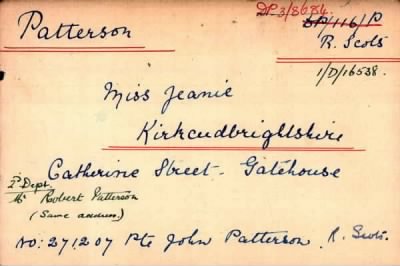 DP 3/8684.
Patterson
DP/116/P
R. Scots
1/D/16538.
Miss Jeanie
Kirkcudbrightshire
Catherine Street - Gatehouse
2nd Dept.
Mr Robert Patterson
(Same address.)
No: 271207 Pte John Patterson R. Scots.